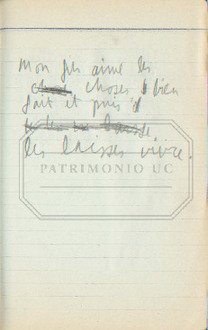 Mon fils aime les
choses bien
fait et puis il
les laisses vivre.
PATRIMONIO UC